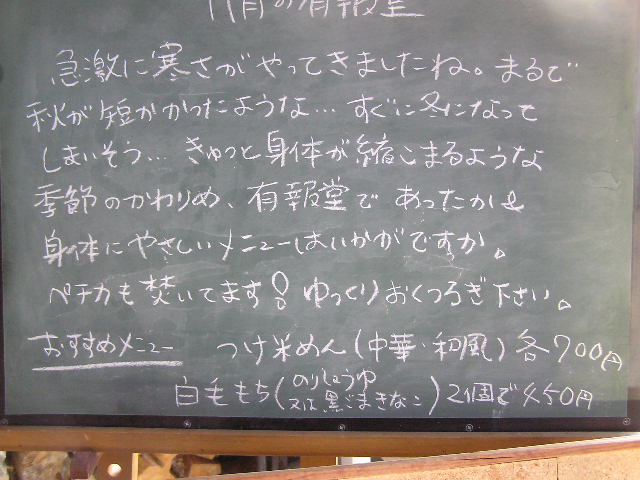 11月の有報堂
急激に寒さがやってきましたね。まるで
秋が短かかったような… すぐに冬になって
しまいそう… きゅっと身体が縮こまるような
季節のかわりめ、有報堂で あったか&
身体にやさしいメニューはいかがですか。
ペチカも焚いてます! ゆっくりおくつろぎ下さい。
おすすめメニュー つけ米めん(中華・和風)各700円
白毛もち(のりしょうゆ
又は黒ごまきなこ)2個で450円